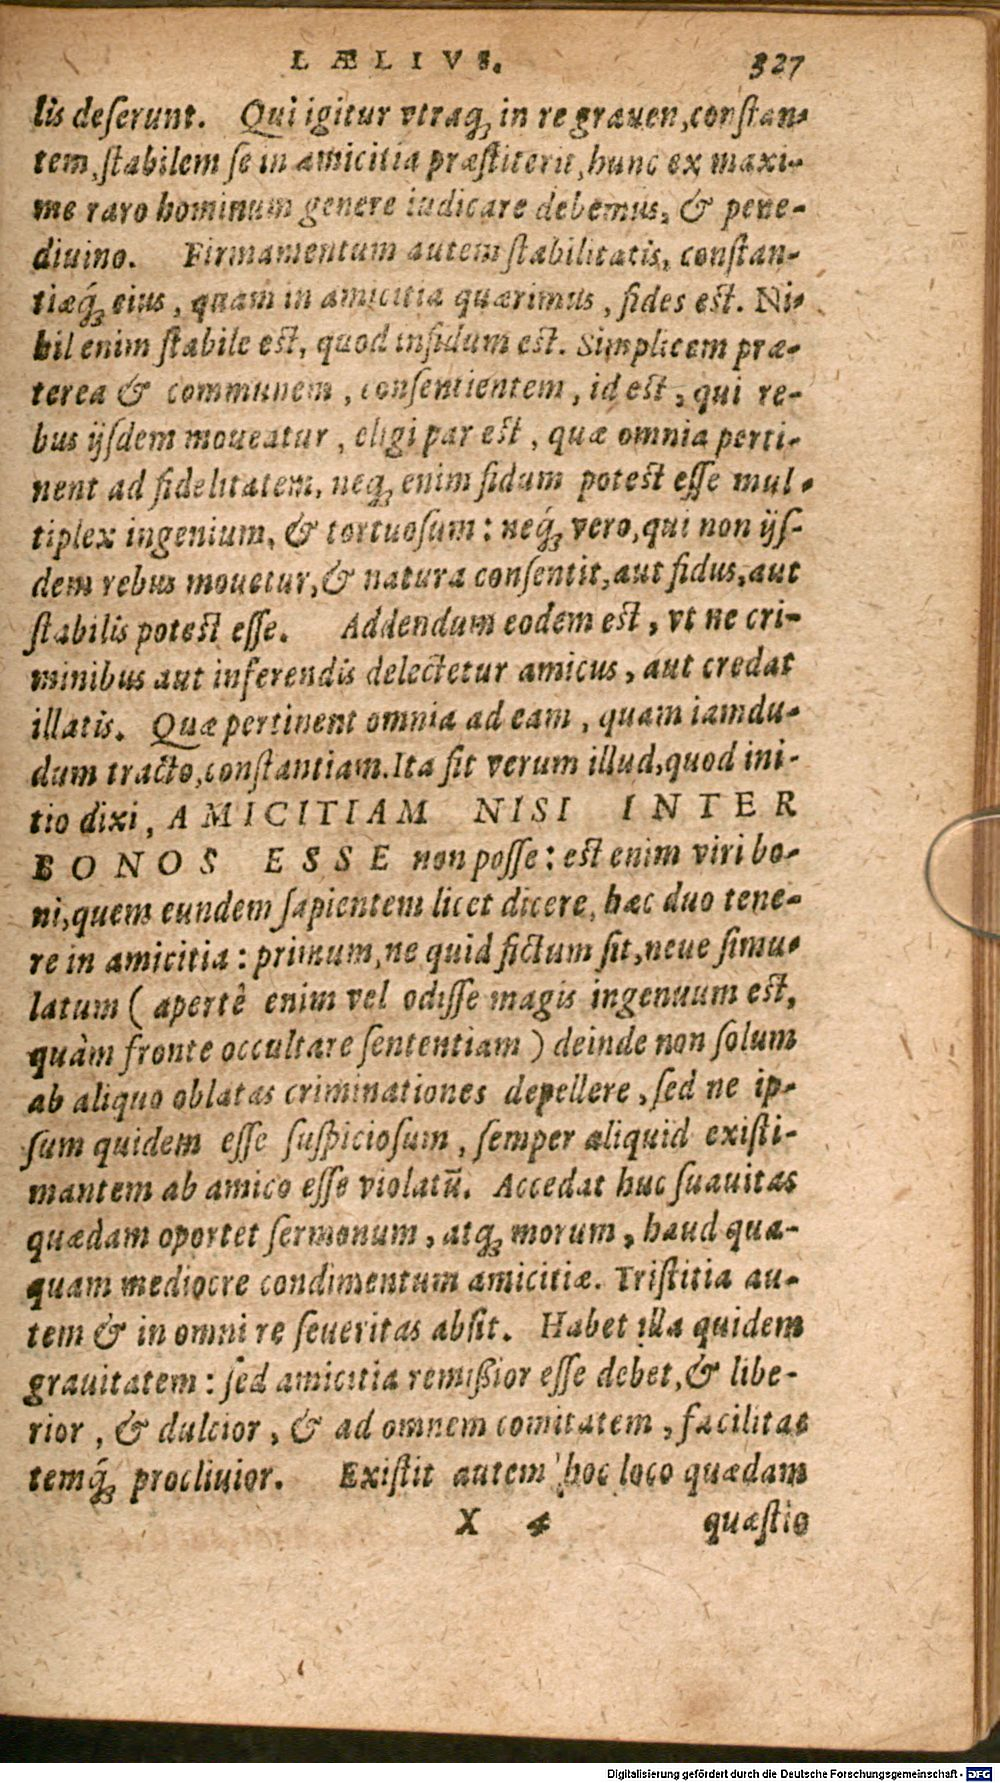 LÆLIVS. 327
lis deſerunt. Qui igitur vtraq; in re grauen, conſtan-
tem, ſtabilem ſe in amicitia præſtiterit, hunc ex maxi-
me raro hominum genere iudicare debemus, & pene-
diuino. Firmamentum autem ſtabilitatis, conſtan-
tiæq́; eius, quam in amicitia quærimus, fides est. Ni-
hil enim ſtabile est, quod infidum est. Simplicem præ-
terea & communem, conſentientem, id est, qui re-
bus ijſdem moueatur, eligi par est, quæ omnia perti-
nent ad fidelitatem, neq; enim fidum potest eſſe mul-
tiplex ingenium, & tortuoſum: neq́; vero, qui non ijſ-
dem rebus mouetur, & natura conſentit, aut fidus, aut
ſtabilis potest eſſe. Addendum eodem est, vt ne cri-
minibus aut inferendis delectetur amicus, aut credat
illatis. Quæ pertinent omnia ad eam, quam iamdu-
dum tracto, conſtantiam. Ita fit verum illud, quod ini-
tio dixi, AMICITIAM NISI INTER
BONOS ESSE non poſſe: est enim viri bo-
ni, quem eundem ſapientem licet dicere, hæc duo tene-
re in amicitia: primum, ne quid fictum ſit, neue ſimu-
latum (apertè enim vel odiſſe magis ingenuum est,
quàm fronte occultare ſententiam) deinde non ſolum
ab aliquo oblatas criminationes depellere, ſed ne ip-
ſum quidem eſſe ſuſpicioſum, ſemper aliquid exiſti-
mantem ab amico eſſe violatū. Accedat huc ſuauitas
quædam oportet ſermonum, atq; morum, haud qua-
quam mediocre condimentum amicitiæ. Triſtitia au-
tem & in omni re ſeueritas abſit. Habet illa quidem
grauitatem: ſed amicitia remißior eſſe debet, & libe-
rior, & dulcior, & ad omnem comitatem, facilitat
temq́; procliuior. Exiſtit autem hoc loco quædam
X 4 quæſtio
Digitalisierung gefördert durch die Deutsche Forschungsgemeinschaft - DFG